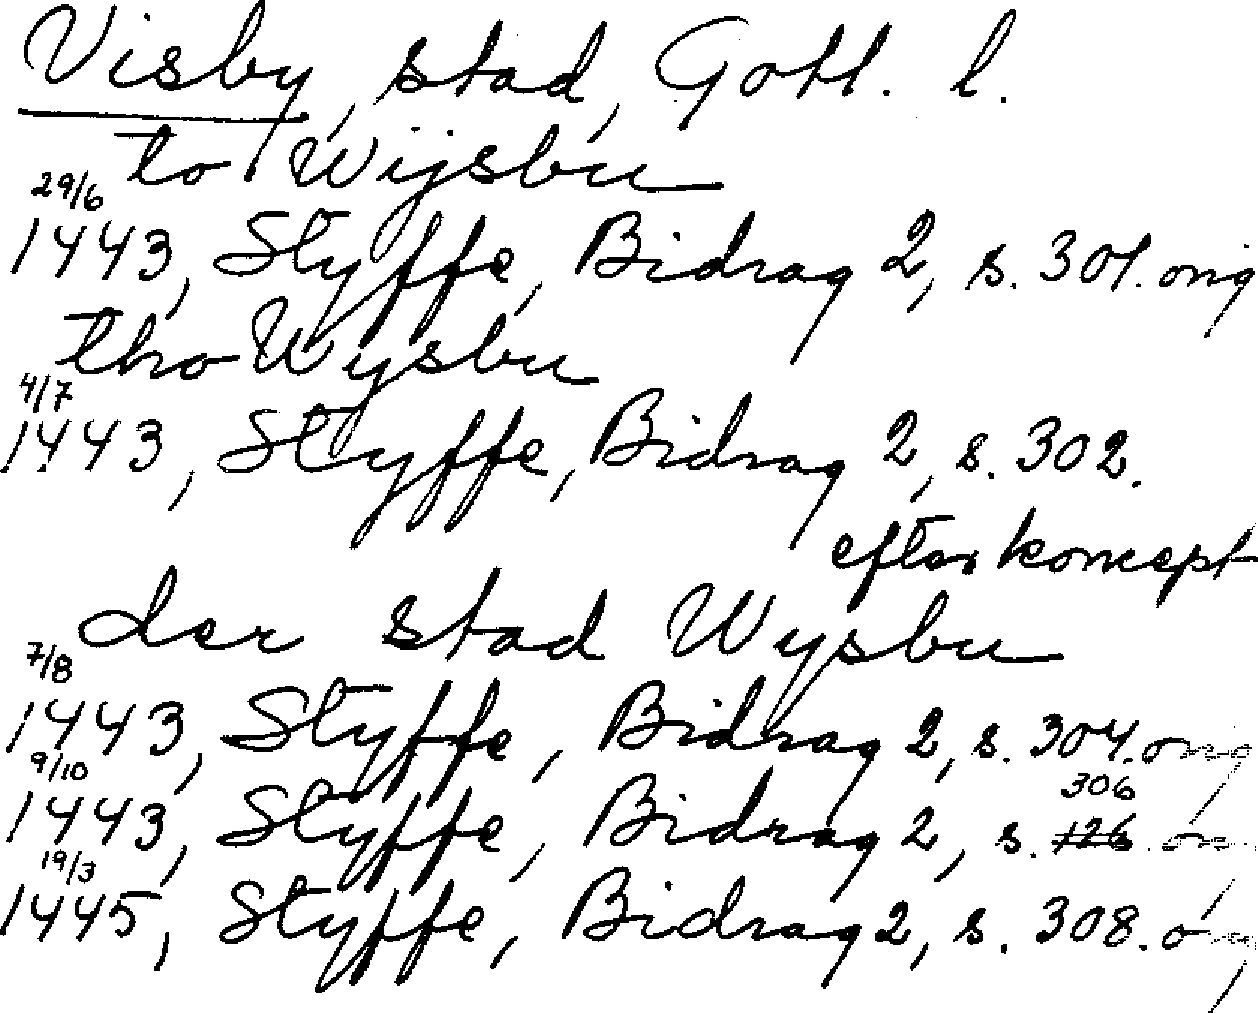 Visby, stad, Gotl. l.
to Wijsbu
29/6
1443, Styffe, Bidrag 2, s. 301. orig
tho Wysbu
4/7
1443, Styffe, Bidrag 2, s. 302.
efter koncept
der stad Wysbu
7/8
1443, Styffe, Bidrag 2, s. 304. orig
9/10 306
1443, Styffe, Bidrag 2, s. 126
19/3
1445, Styffe, Bidrag 2, s. 308.